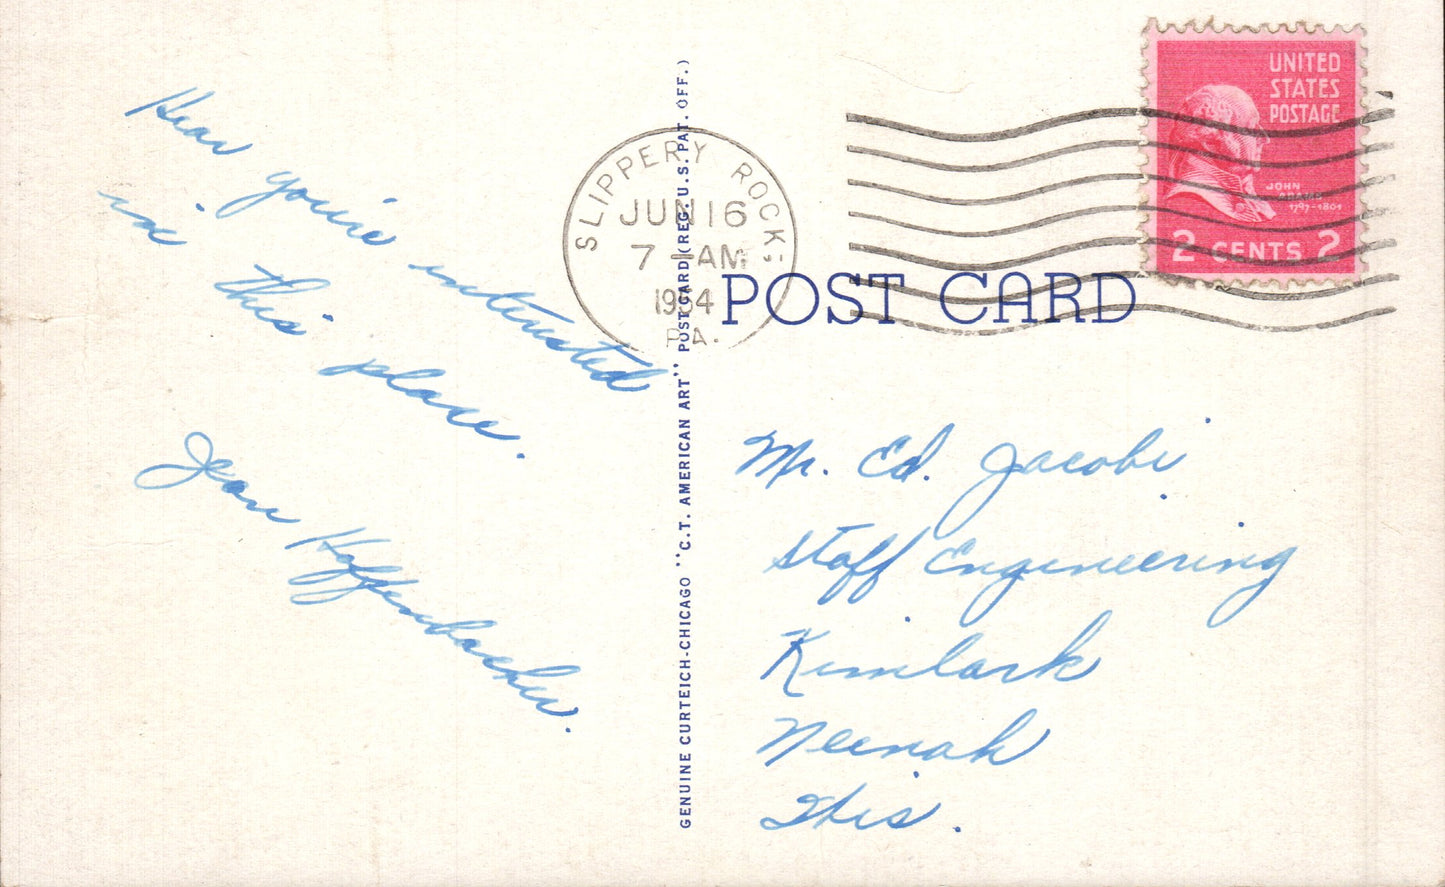 Hear you're interested
in this place.
Jean Hoffenbacher.
SLIPPERY ROCK
JUN 16
7 - AM
1954
PA.
UNITED
STATES
POSTAGE
JOHN
ADAMS
1797-1801
2 CENTS 2
POST CARD
GENUINE CURTEICH-CHICAGO "C.T. AMERICAN ART" POST CARD (REG. U.S. PAT. OFF.)
Mr. Ed. Jacobi
Staff Engineering
Kimlark
Neenah
Wis.